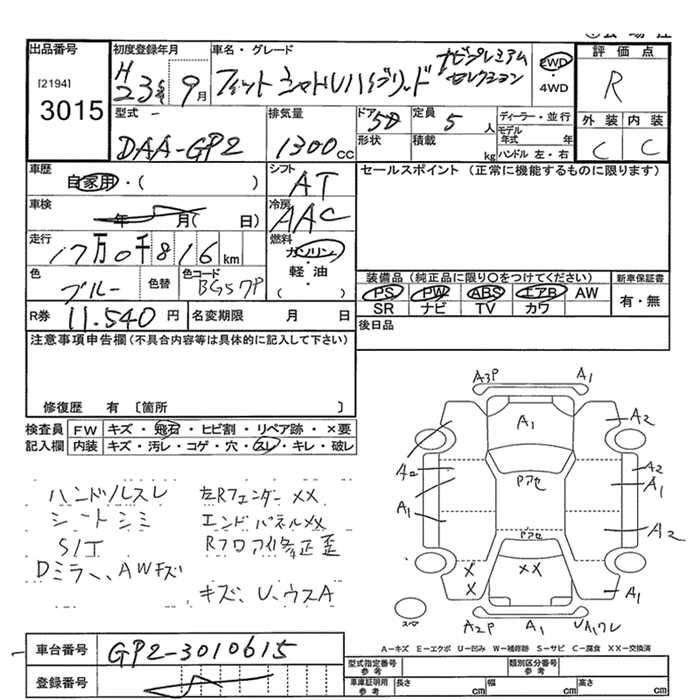 出品番号
[2194]
3015
初度登録年月
H23年 9月
車名・グレード
フィットシャトルハイブリッド
ナビプレミアム
セレクション
2WD
・
4WD
評価点
R
外装 内装
C C
型式
DAA-GP2
排気量
1300cc
ドア 5D
形状
定員 5人
積載 kg
ディーラー・並行
モデル年式 年
ハンドル 左・右
車歴
自家用・( )
車検
年 月( 日)
シフト
AT
冷房
AAC
走行
17万0千816km
燃料
ガソリン
・
軽油
( )
色
ブルー
色替
色コード
BG57P
R券 11,540円
名変期限 月 日
セールスポイント (正常に機能するものに限ります)
装備品 (純正品に限り○をつけてください)
PS PW ABS エアB AW
SR ナビ TV カワ
新車保証書
有・無
後日品
注意事項申告欄(不具合内容等は具体的に記入して下さい)
修復歴 有 〔箇所 〕
検査員
記入欄
FW キズ・飛石・ヒビ割・リペア跡・×要
内装 キズ・汚レ・コゲ・穴・スレ・キレ・破レ
ハンドルスレ
シートシミ
S/T
Dミラー、AWキズ
左Rフェンダー XX
エンドパネルXX
Rフロア修正歪
キズ、U、ウスA
A3P A1
A1 A2
A2
A1 A1
Pアセ
Pアセ
A2
X
X
XX
A1
スペ
A2P A1 UA1ワレ
A-キズ E-エクボ U-凹み W-補修跡 S-サビ C-腐食 XX-交換済
車台番号 GP2-3010615
登録番号
型式指定番号
参考
類別区分番号
参考
車庫証明用
参考
長さ cm
幅 cm
高さ cm